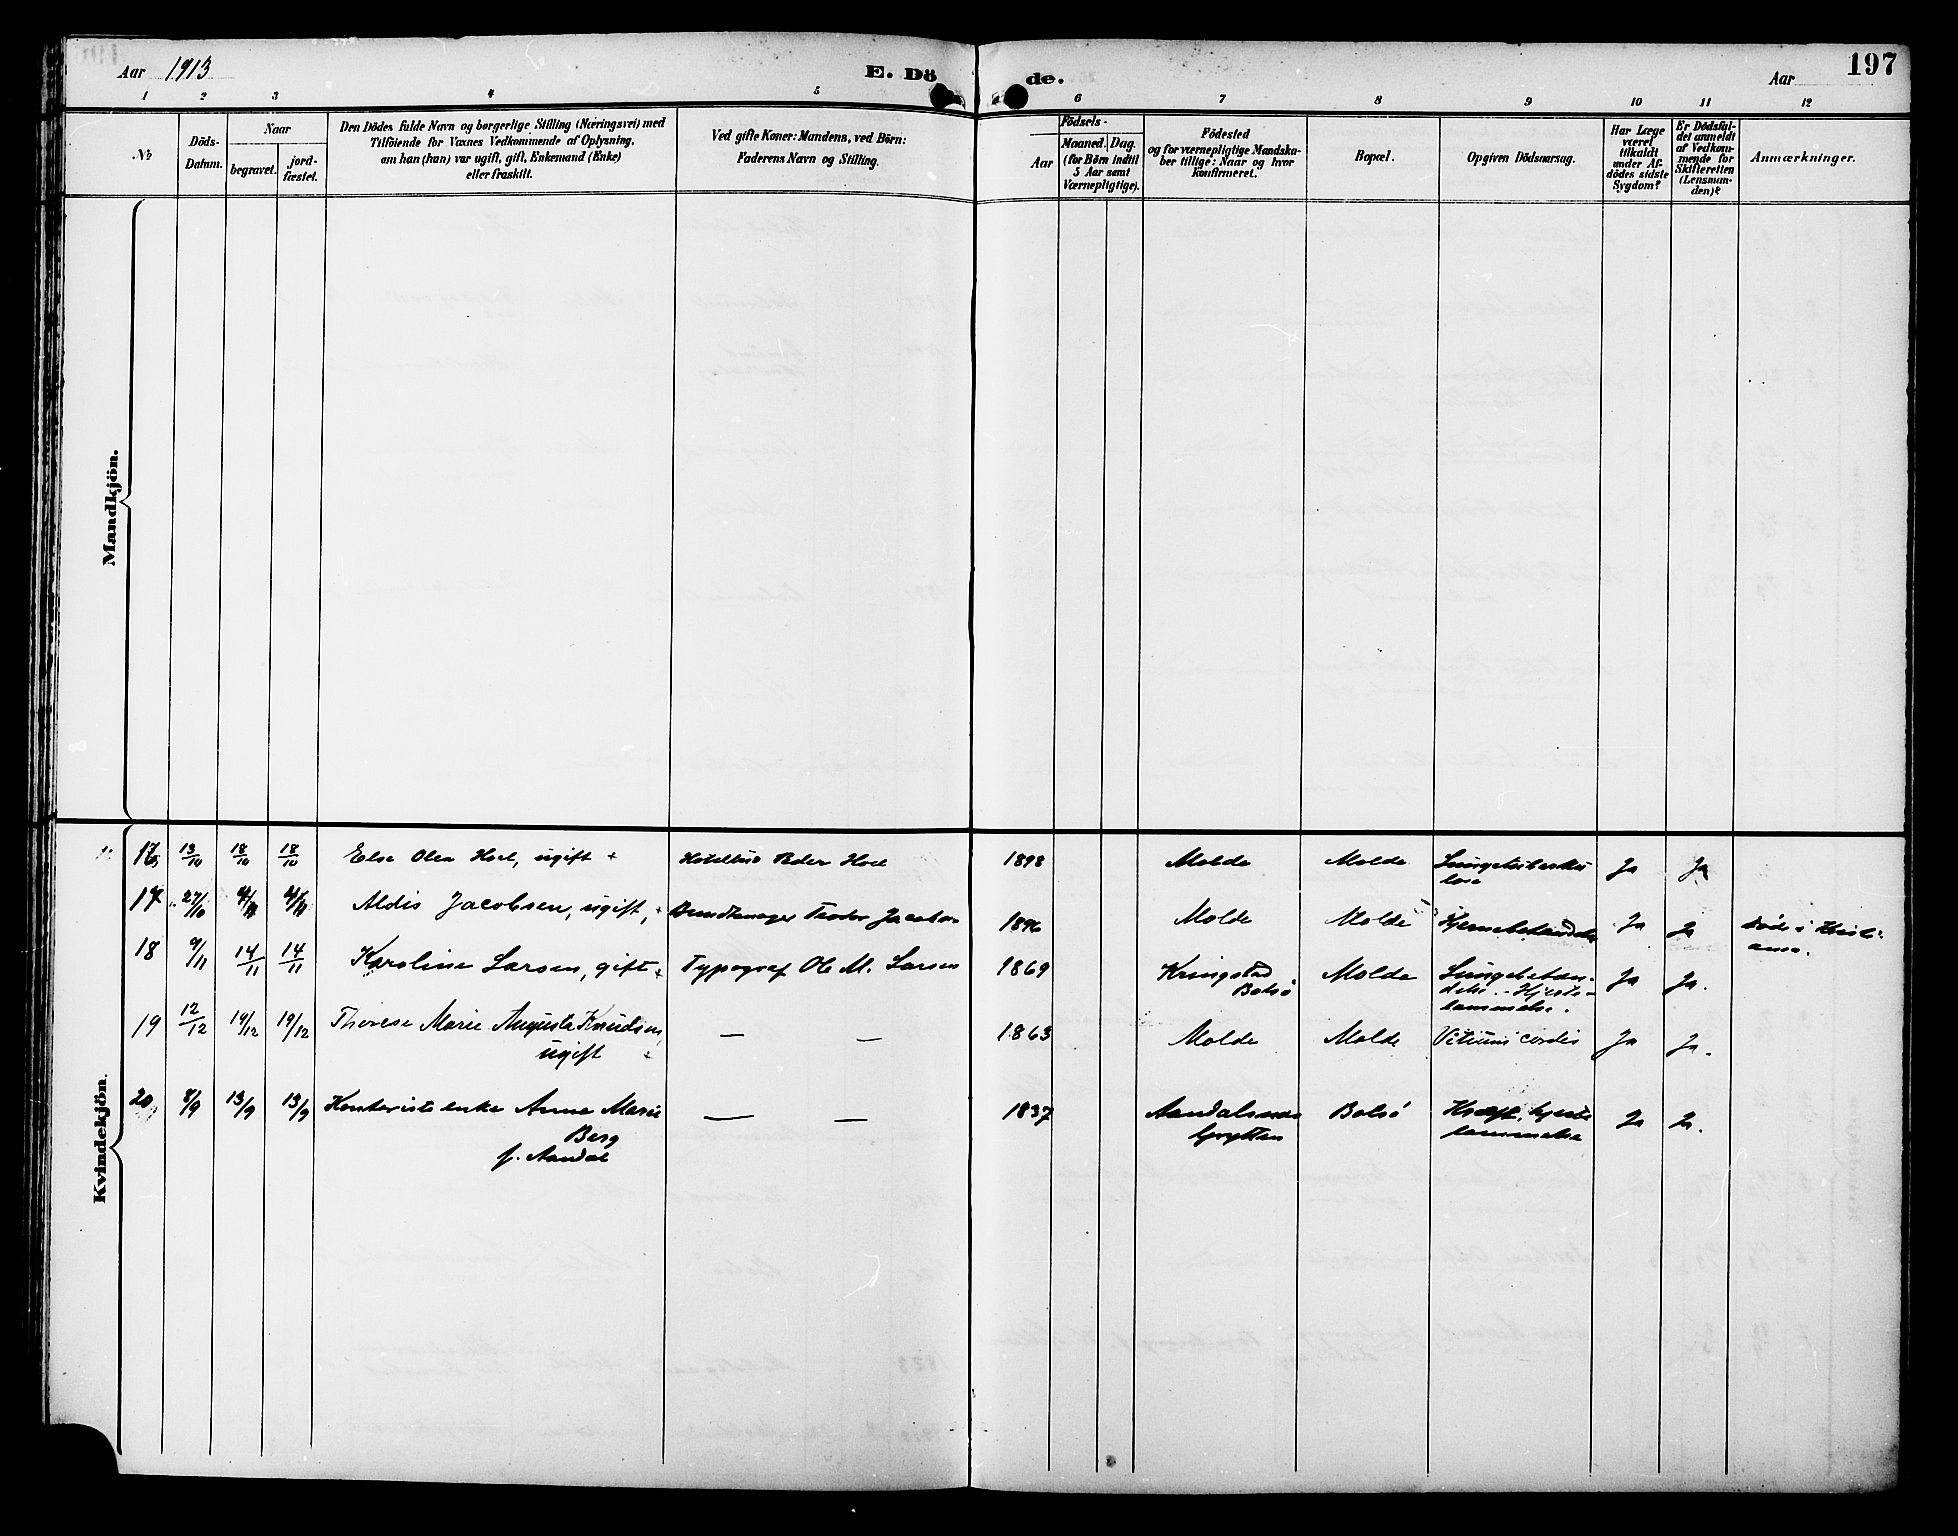 Aar 1913
E. Dö
de.
Aar
197
1 2 3 4 5 6 7 8 9 10 11 12
№
Döds-
Datum.
Naar
begravet.
jord-
fæstet.
Den Dödes fulde Navn og borgerlige Stilling (Næringsvei) med
Tilföiende for Voxnes Vedkommende af Oplysning,
om han (hun) var ugift, gift, Enkemand (Enke)
eller fraskilt.
Ved gifte Koner: Mandens, ved Börn:
Faderens Navn og Stilling.
Födsels-
Aar
Maaned. Dag.
(for Börn indtil
5 Aar samt
Værnepligtige).
Födested
og for værnepligtige Mandska-
ber tillige: Naar og hvor
konfirmeret.
Bopæl.
Opgiven Dödsaarsag.
Har Læge
været
tilkaldt
under Af-
dödes sidste
Sygdom?
Er Dödsfal-
det anmeldt
af Vedkom-
mende for
Skifteretten
(Lensman-
den)?
Anmærkninger.
Mandkjön.
Kvindekjön.
13/10 18/10 18/10 Else Olea Hoel, ugift + Peder Hoel 1898 Molde Molde Lungetuberku
lose Ja Ja
17 27/10 Aldis Jacobsen, ugift, + Jacobsen 1896 Molde Molde Hjernebetændelse Ja Ja Död i Kristi-
ania.
18 9/11 14/11 14/11 Karoline Larsen, gift + Typograf Ole M. Larsen 1869 Kringstad
Bolsö Molde Lungebetæn-
delse. - Hjerte-
lammelse. Ja Ja.
19 12/12 19/12 19/12 Therese Marie Augusta Knudsen,
ugift + — — 1863 Molde Molde Vitium cordis Ja Ja.
20 8/9 13/9 13/9 Kontoristenke Anne Marie
Berg
f. Aandal — — 1837 Aandalsnes
Grytten Bolsö Kræft, hjerte
lammelse Ja Ja.